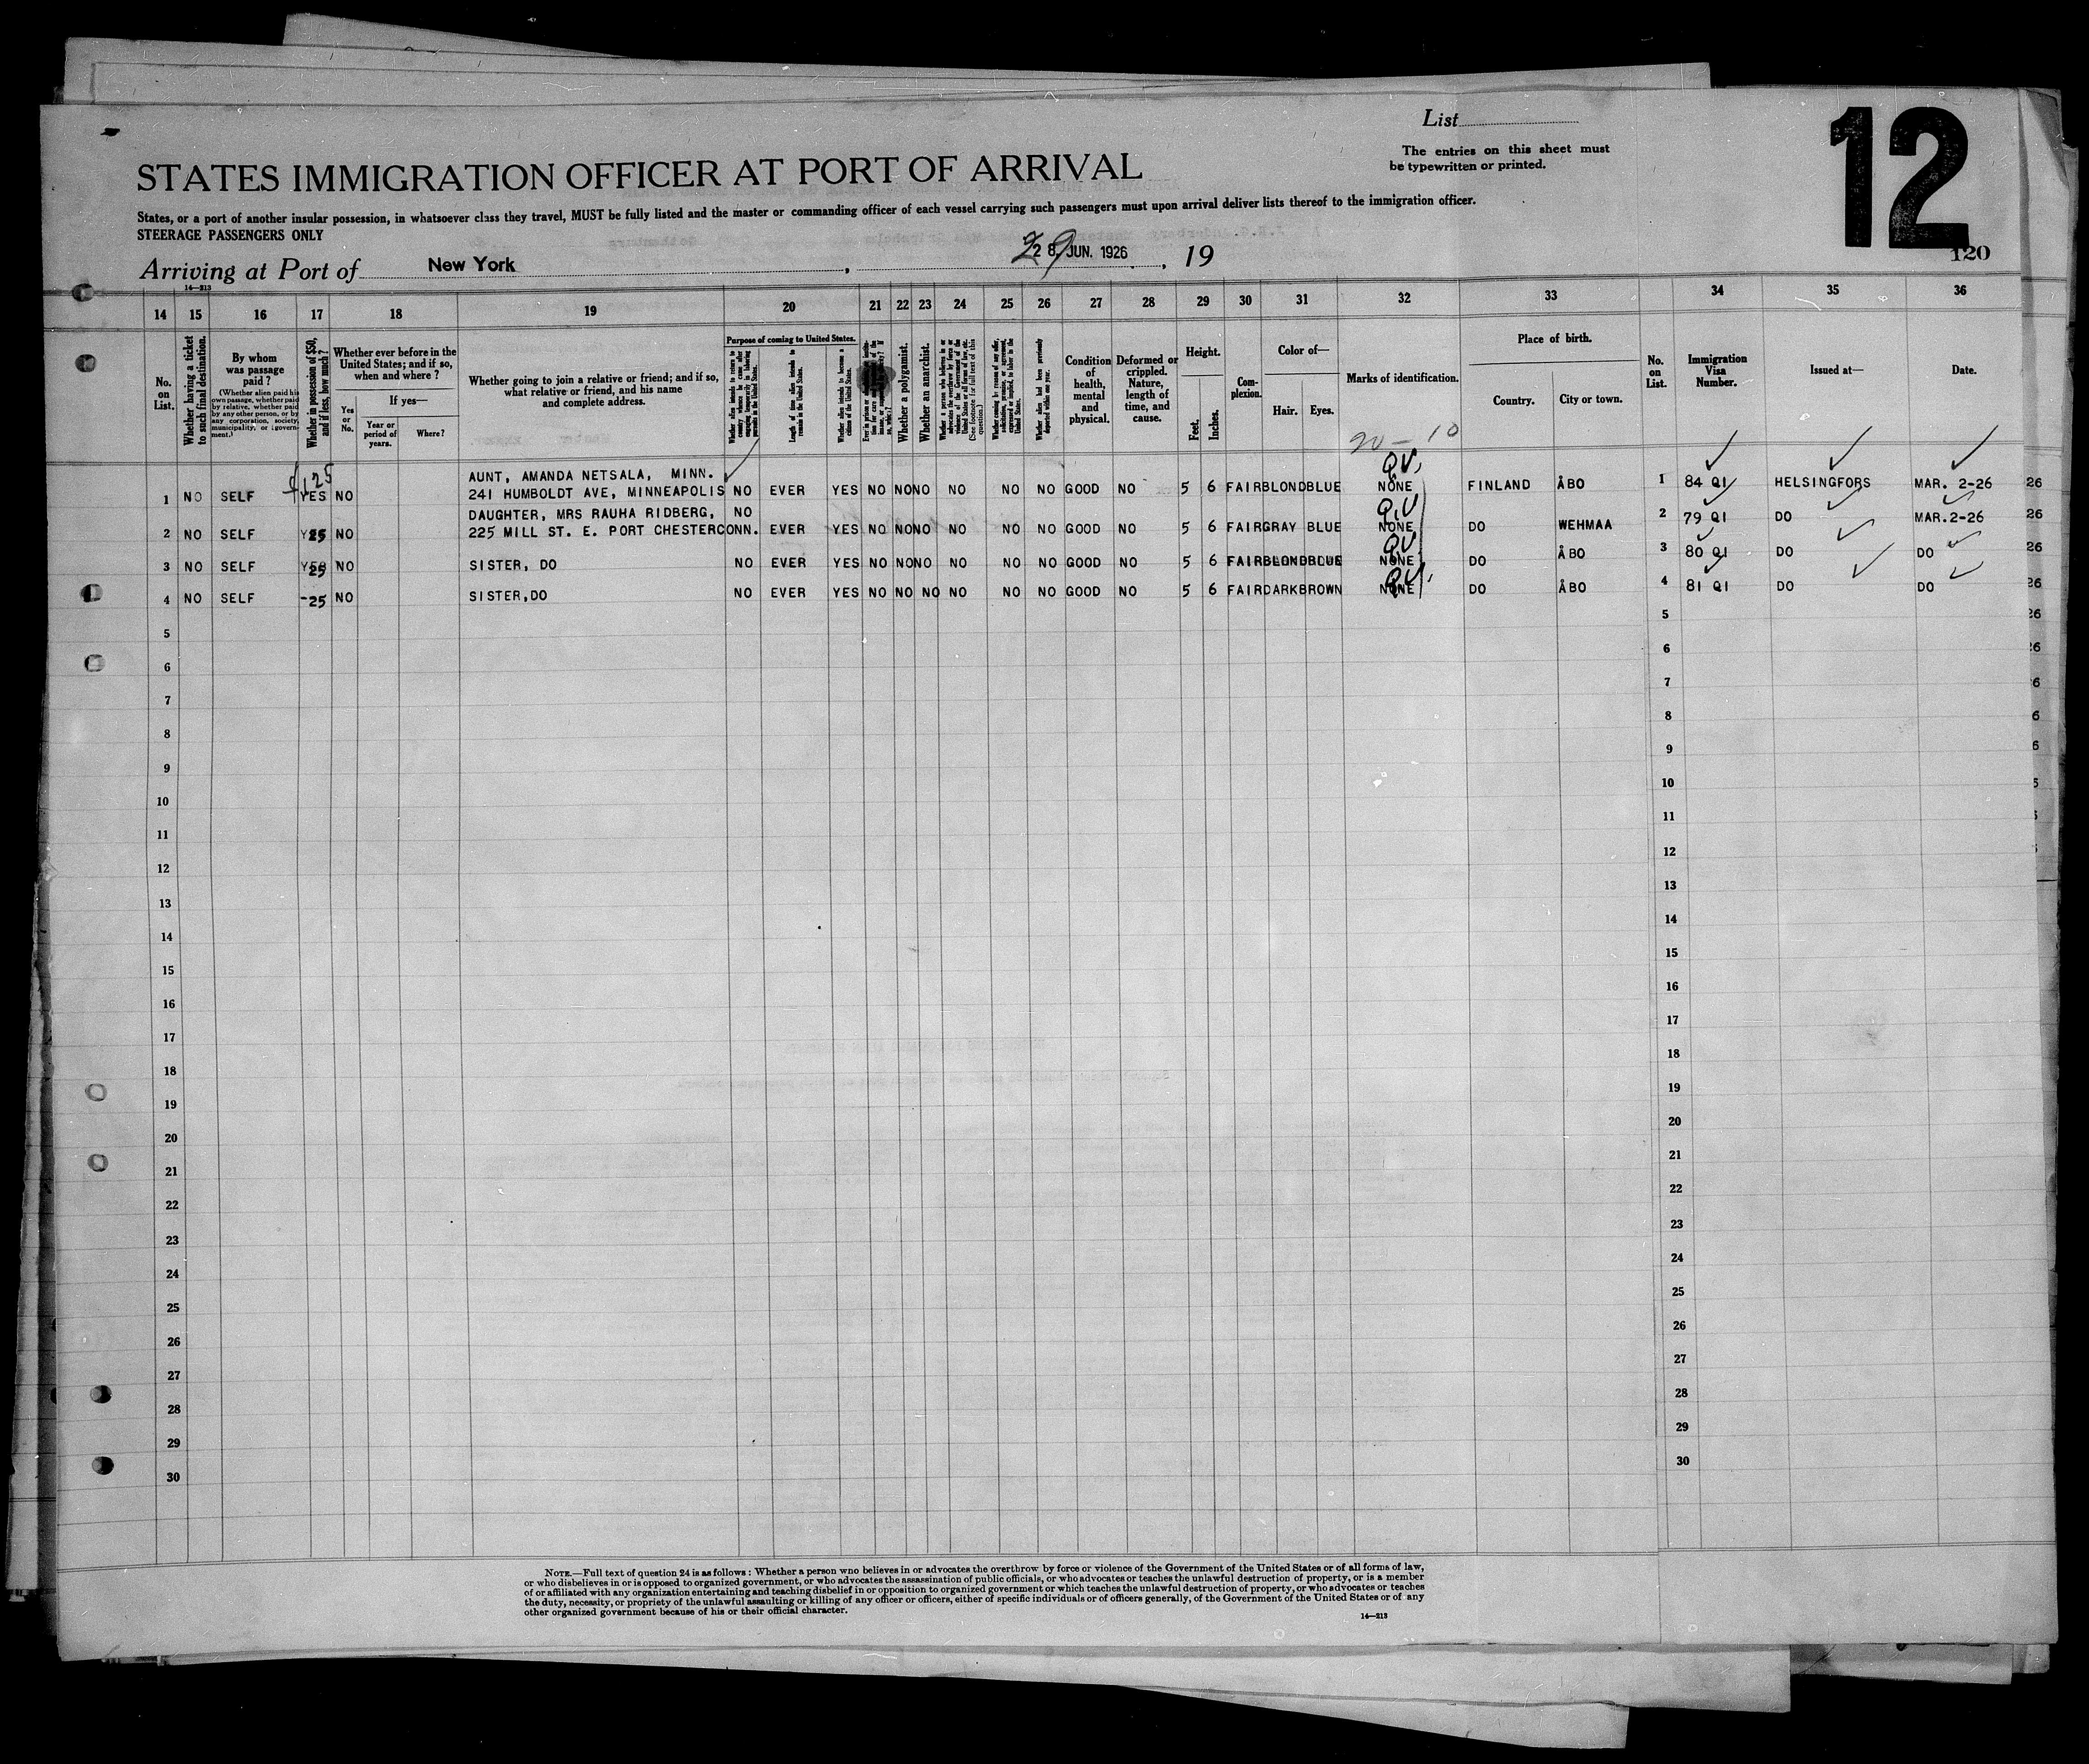 List
The entries on this sheet must
be typewritten or printed.
12
120
STATES IMMIGRATION OFFICER AT PORT OF ARRIVAL
States, or a port of another insular possession, in whatsoever class they travel, MUST be fully listed and the master or commanding officer of each vessel carrying such passengers must upon arrival deliver lists thereof to the immigration officer.
STEERAGE PASSENGERS ONLY
Arriving at Port of New York, 28 JUN. 1926, 19
14—213
14 15 16 17 18 19 20 21 22 23 24 25 26 27 28 29 30 31 32 33 34 35 36
No. on List.
Whether having a ticket to such final destination.
By whom was passage paid?
(Whether alien paid his own passage, whether paid by relative, whether paid by any other person, or by any corporation, society, municipality, or government.)
Whether in possession of $50, and if less, how much?
Whether ever before in the United States; and if so, when and where?
If yes—
Yes or No.
Year or period of years.
Where?
Whether going to join a relative or friend; and if so, what relative or friend, and his name and complete address.
Purpose of coming to United States.
Length of time alien intends to remain in the United States.
Whether alien intends to become a citizen of the United States.
Whether a polygamist.
Whether an anarchist.
Condition of health, mental and physical.
Deformed or crippled. Nature, length of time, and cause.
Height.
Feet.
Inches.
Complexion.
Color of—
Hair.
Eyes.
Marks of identification.
Place of birth.
Country.
City or town.
No. on List.
Immigration Visa Number.
Issued at—
Date.
20 - 10
$125
AUNT, AMANDA NETSALA, MINN.
1 NO SELF YES NO 241 HUMBOLDT AVE, MINNEAPOLIS NO EVER YES NO NO NO NO NO NO GOOD NO 5 6 FAIR BLOND BLUE QV. NONE FINLAND ÅBO 1 84 QI HELSINGFORS MAR. 2-26 26
DAUGHTER, MRS RAUHA RIDBERG, NO
2 NO SELF 25 NO 225 MILL ST. E. PORT CHESTER CONN. EVER YES NO NO NO NO NO NO GOOD NO 5 6 FAIR GRAY BLUE QV NONE DO WEHMAA 2 79 QI DO MAR.2-26 26
3 NO SELF 25 NO SISTER, DO NO EVER YES NO NO NO NO NO NO GOOD NO 5 6 FAIR BLOND BLUE QV NONE DO ÅBO 3 80 QI DO DO 26
4 NO SELF -25 NO SISTER,DO NO EVER YES NO NO NO NO NO NO GOOD NO 5 6 FAIR DARK BROWN QV. NONE DO ÅBO 4 81 QI DO DO 26
5 5 26
6 6 26
7 7 6
8 8 6
9 9 6
10 10 5
11 11
12 12
13 13
14 14
15 15
16 16
17 17
18 18
19 19
20 20
21 21
22 22
23 23
24 24
25 25
26 26
27 27
28 28
29 29
30 30
NOTE.—Full text of question 24 is as follows: Whether a person who believes in or advocates the overthrow by force or violence of the Government of the United States or of all forms of law,
or who disbelieves in or is opposed to organized government, or who advocates the assassination of public officials, or who advocates or teaches the unlawful destruction of property, or is a member
of or affiliated with any organization entertaining and teaching disbelief in or opposition to organized government or which teaches the unlawful destruction of property, or who advocates or teaches
the duty, necessity, or propriety of the unlawful assaulting or killing of any officer or officers, either of specific individuals or of officers generally, of the Government of the United States or of any
other organized government because of his or their official character.
14—213